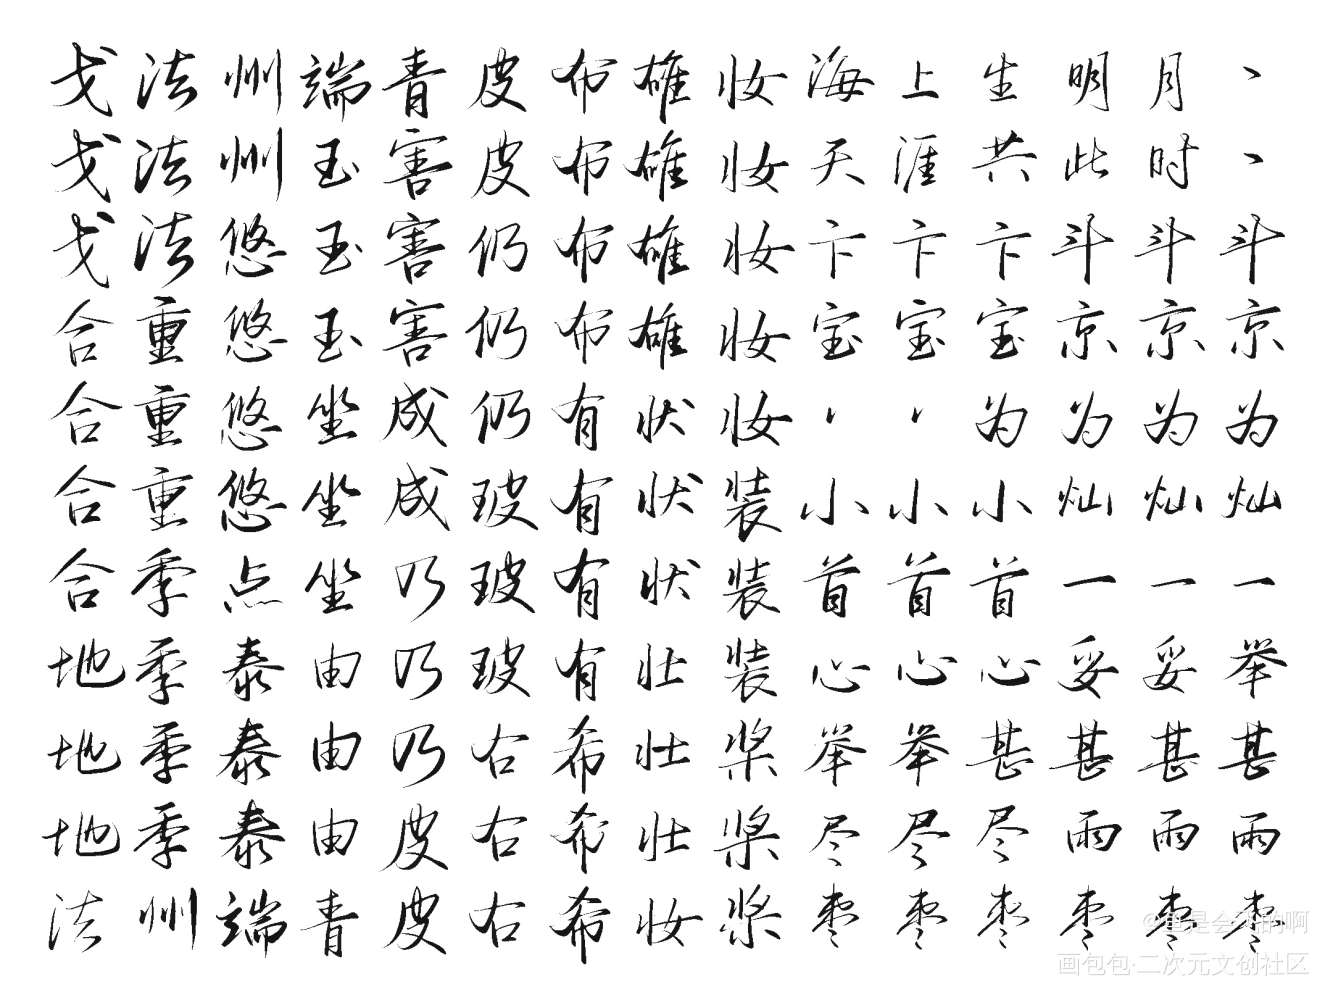 戈法州端青皮布雄妆海上生明月丶
戈法州玉害皮布雄妆天涯共此时丶
戈法悠玉害仍布雄妆卞卞卞斗斗斗
合重悠玉害仍布雄妆宝宝宝京京京
合重悠坐成仍有状妆丶丶为为为为
合重悠坐成玻有状装小小小灿灿灿
合季点坐乃玻有状装首首首一一一
地季泰由乃玻有壮装心心心妥妥举
地季泰由乃右希壮桨举举甚甚甚甚
地季泰由皮右希壮桨尽尽尽雨雨雨
法州端青皮右希妆桨枣枣枣枣枣枣
画包包·二次元文创社区